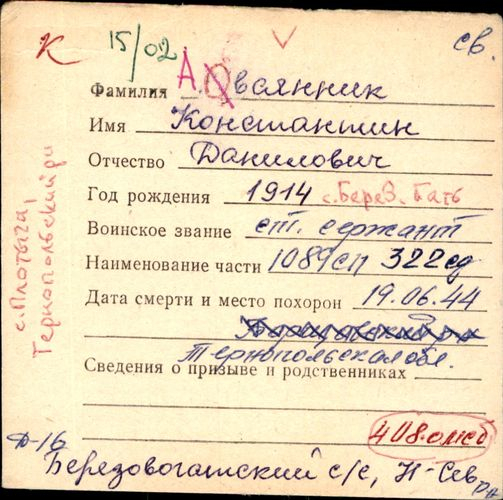 К 15/02 св.
Фамилия А. Овсянник
Имя Константин
Отчество Данилович
Год рождения 1914 с. Берез. Гать
Воинское звание ст. сержант
Наименование части 1089сп 322сд
Дата смерти и место похорон 19.06.44
Тернопольская обл.
Сведения о призыве и родственниках
408.омсб
Д-16
Березовогатский с/с, Н-Сев рн
с. Плотыча,
Тернопольский рн